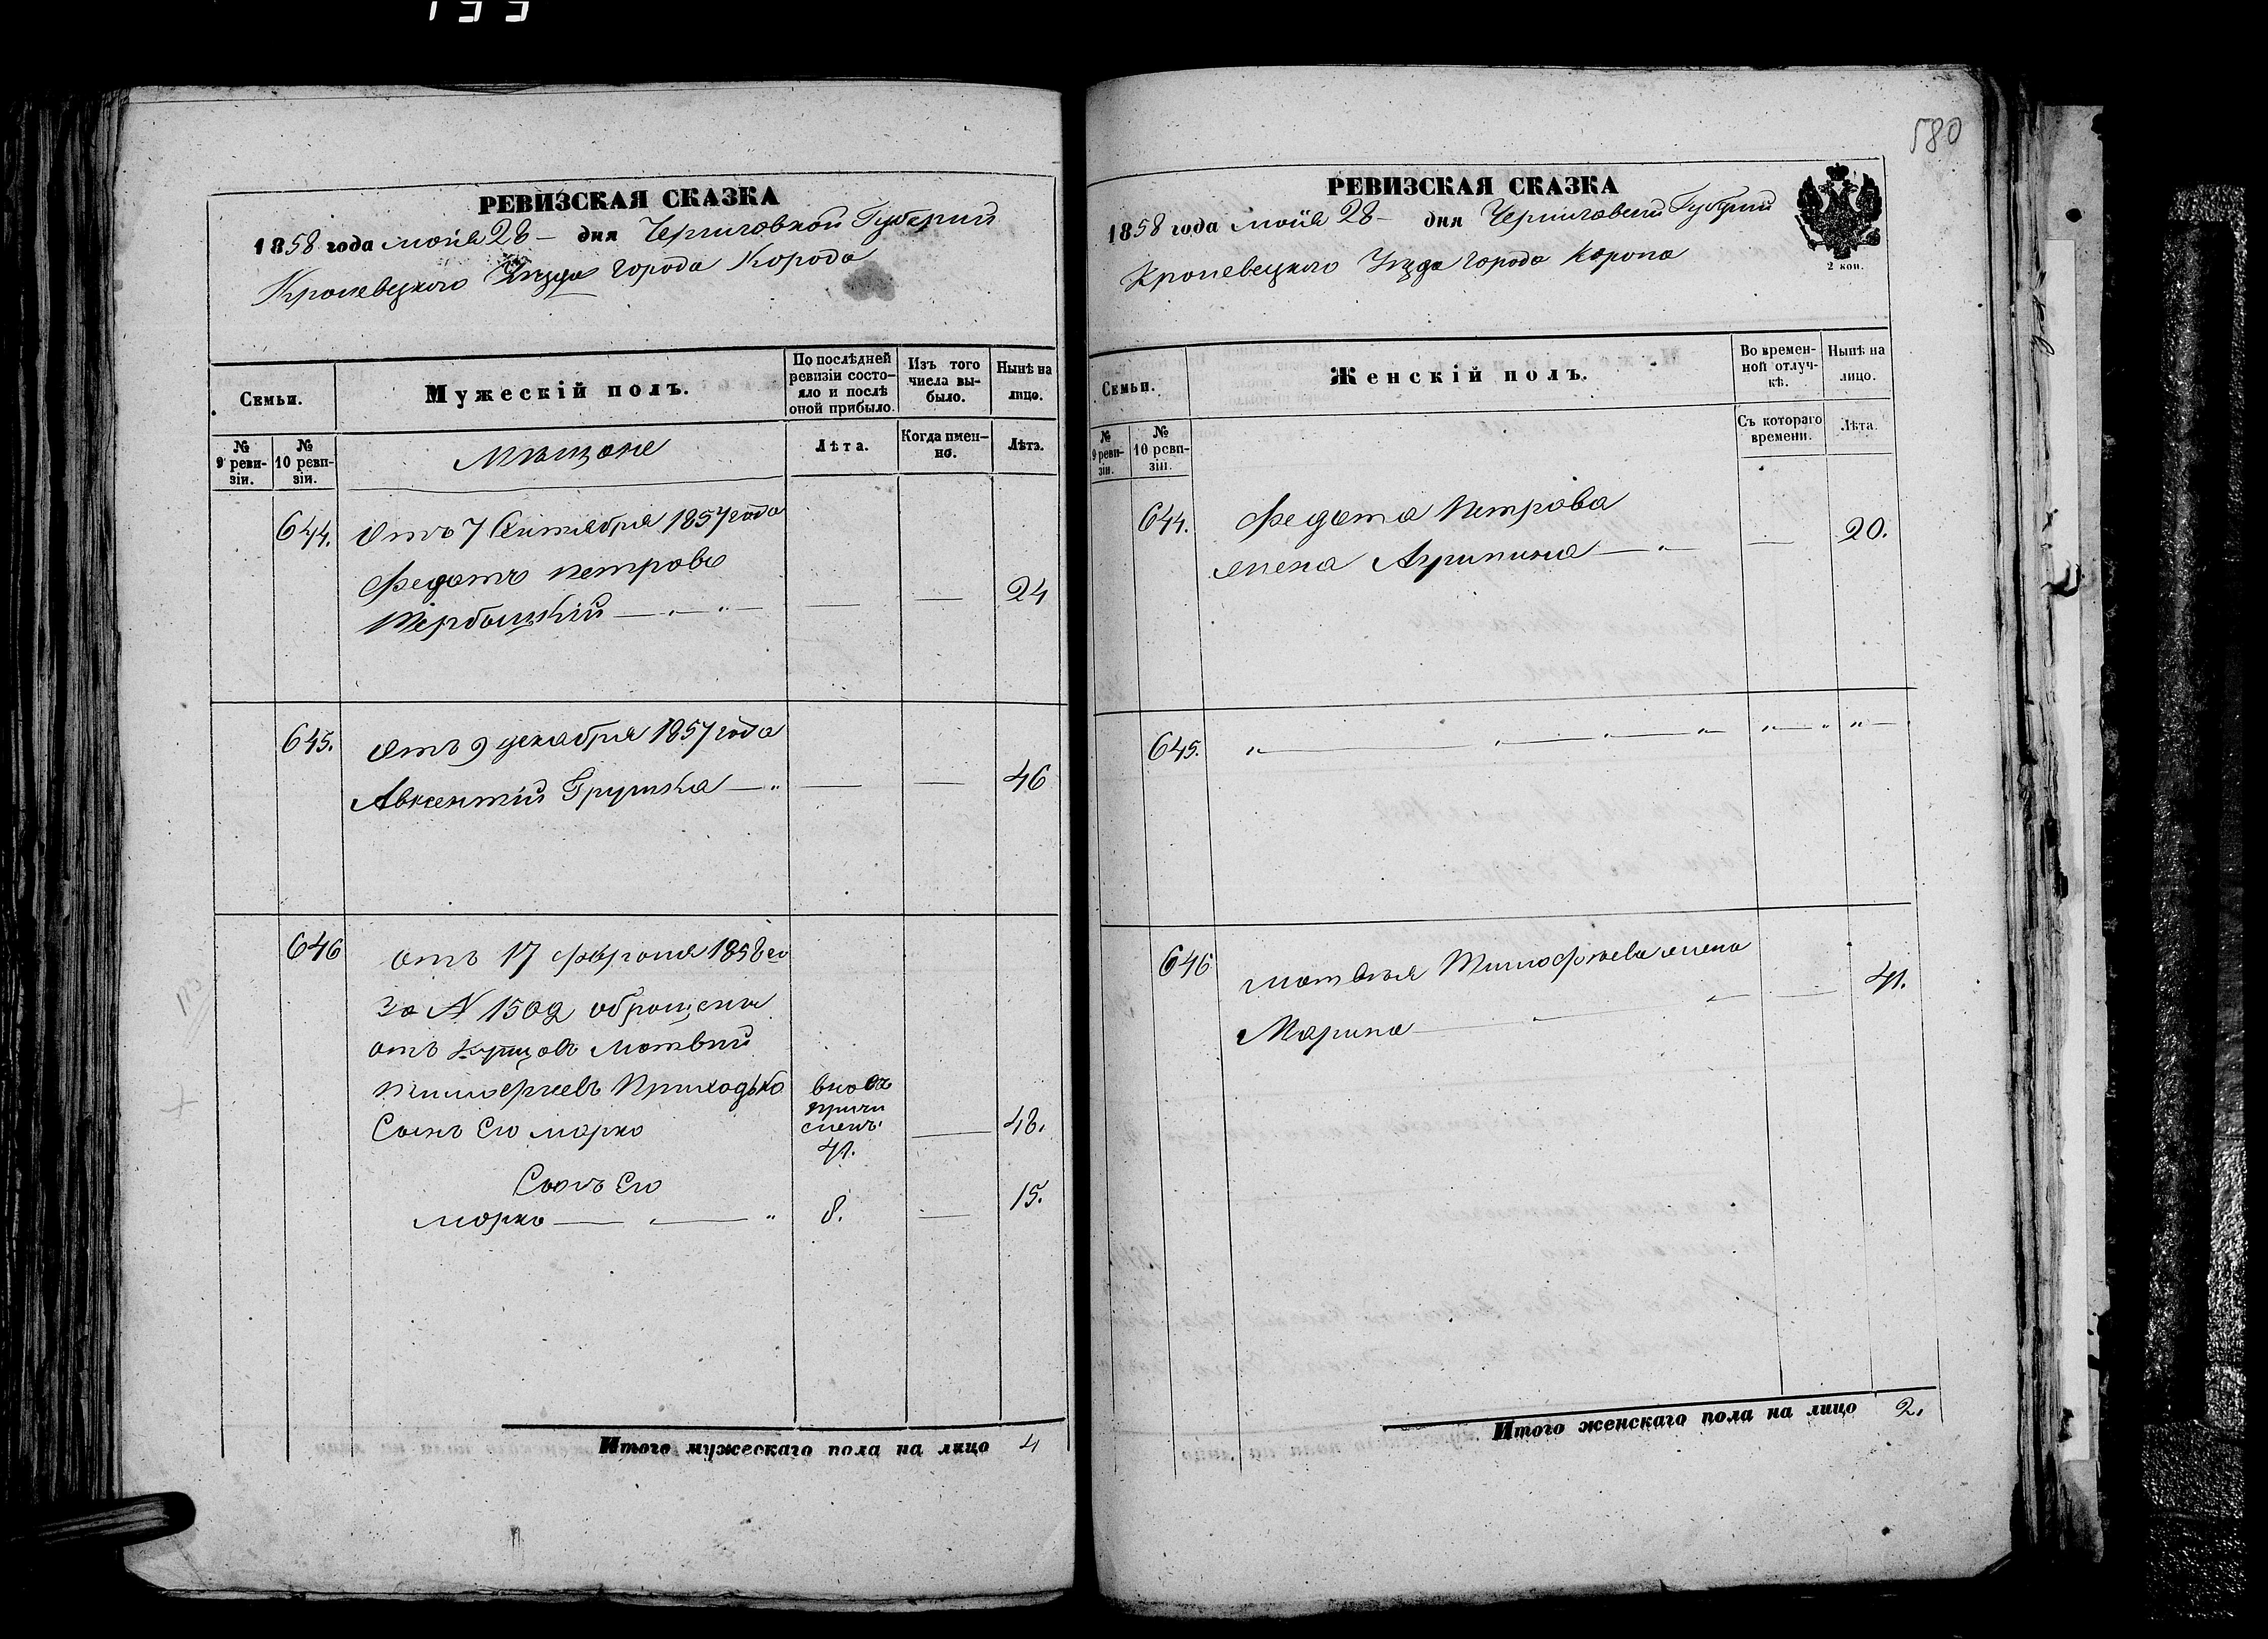 133
РЕВИЗСКАЯ СКАЗКА
1858 года маія 28 — дня Черниговской Губерніи
Кролевецкого Уезда города Коропа
Семьи.
Мужескій полъ.
По послѣдней ревизіи состояло и послѣ оной прибыло.
Изъ того числа выбыло.
Нынѣ на лицо.
№ 9 ревизіи.
№ 10 ревизіи.
Мѣщане
Лѣта.
Когда именно.
Лѣта.
644. Отъ 7 Сентября 1857 года
Федотъ Петровъ
— — 24
645. Отъ 9 декабря 1857 года
Авксентій Грушка — „ — — 46
646 отъ 17 февраля 1858 го
за N 1502 обращены
отъ купцовъ Матвій
Тимофеевъ Приходько вновь
причи
Сынъ Его Марко сленъ. — 48.
41.
Сынъ Его 15.
Марко — „ — „ 8. —
Итого мужескаго пола на лицо 4
580
РЕВИЗСКАЯ СКАЗКА
1858 года маія 28 — дня Черниговской Губерніи
Кролевецкого Уезда города Коропа
2 коп.
Семьи.
Женскій полъ.
Во временной отлучкѣ.
Нынѣ на лицо.
№ 9 ревизіи.
№ 10 ревизіи.
Съ котораго времени.
Лѣта.
644. Федота Петрова
жена Агрипина — „ — — 20.
645. „ — „ — „ — „ „ — „ „ —
646 Матвѣя Тимофѣева жена
Марина — — 41.
Итого женскаго пола на лицо 2.